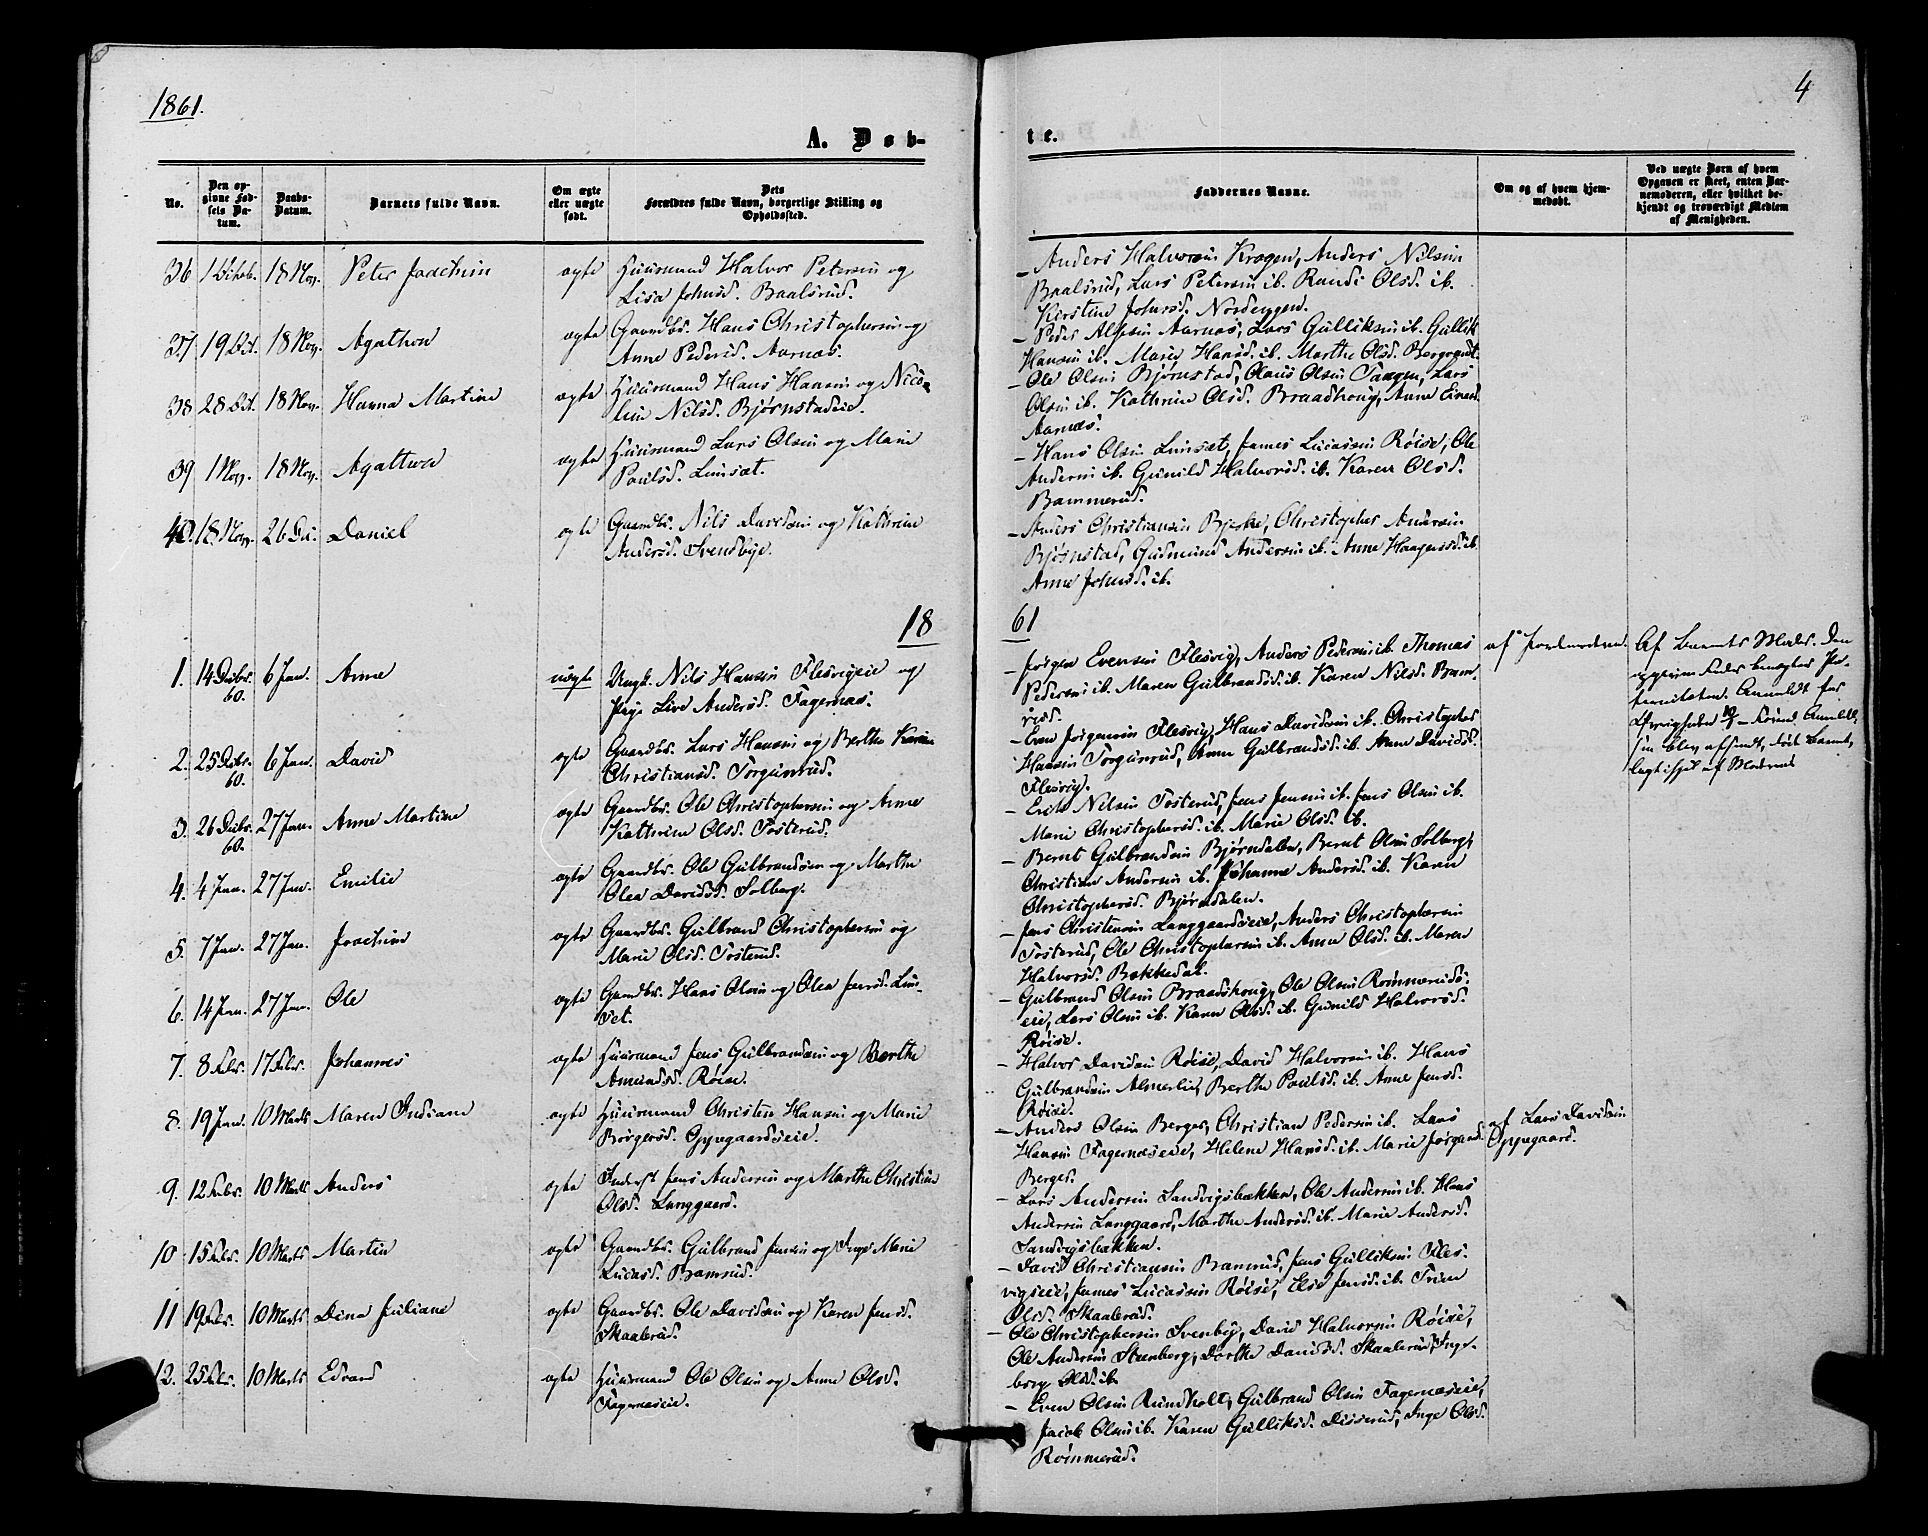 1861.
4
A. Døb-
te.
No.
Den op-
givne Fød-
sels Da-
tum.
Daabs-
Datum.
Barnets fulde Navn.
Om ægte
eller uægte
født.
Dets
Forældres fulde Navn, borgerlige Stilling og
Opholdssted.
Faddernes Navne.
Om og af hvem hjem-
medøbt.
Ved uægte Børn af hvem
Opgaven er skeet, enten Bar-
nemoderen, eller hvilket be-
kjendt og troværdigt Medlem
af Menigheden.
36 1 Octob. 18 Nov. Peter Joachim ægte Huusmand Halvor Petersen og
Lisa Johnsd. Baalsrud.
- Anders Halvorsen Kragen, Anders Nilsen
Baalsrud, Lars Petersen ib. Randi Olsd. ib.
Kirstine Johnsd. Nordenggen.
37 19 Oct. 18 Nov. Agathon ægte Gaardbr. Hans Christophersen og
Anne Pedersd. Aarnæs.
- Peder Alfsen Aarnæs, Lars Gulliksen ib. Gullik
Hansen ib. Marie Hansd. ib. Marthe Olsd. Bergerædt.
38 28 Oct. 18 Nov. Hanna Martine ægte Huusmand Hans Hansen og Nico-
line Nilsd. Bjørnstadeie.
- Ole Olsen Bjørnstad, Olaus Olsen Taagen, Lars
Olsen ib. Kathrine Olsd. Braadhoug, Anne Einersd.
Aarnæs.
39 1 Nov. 18 Nov. Agathea ægte Huusmand Lars Olsen og Marie
Paulsd. Linsæt.
- Hans Olsen Linsæt, James Lucassen Røise, Ole
Andersen ib. Gunild Halvorsd. ib. Karen Olsd.
Bammerud.
40. 18 Nov. 26 De. Daniel ægte Gaardbr. Nils Davidsen og Kathrine
Andersd. Svendbye.
- Anders Christiansen Bjerke, Christopher Andersen
Bjørnstad, Gudmund Andersen ib. Anne Haagensd. ib.
Anne Johnsd. ib.
1861
1. 14 Decbr. 60. 6 Jan. Anne uægte Ungk. Nils Hansen Flesvigeie og
Pige Live Andersd. Fagernæs.
- Jørgen Evensen Flesvig, Anders Pedersen ib. Thomas
Pedersen ib. Maren Gulbrandsd. ib. Karen Nilsd. Bam-
rud.
af Jordmoderen.
Af Barnets Moder. Den
opgivne Fader benegter Pa-
terniteten. Anmeldt for
Øvrigheden
2. 25 Decbr. 60. 6 Jan. David ægte Gaardbr. Lars Hansen og Berthe Karine
Christiansd. Torgunrud.
- Even Jørgensen Flesvig, Hans Davidsen ib. Christopher
Hansen Torgunrud, Anne Gulbrandsd. ib. Anne Davidsd.
Flesvig.
3. 26 Decbr. 60. 27 Jan. Anne Martine ægte Gaardbr. Ole Christophersen og Anne
Kathrine Olsd. Tosterud.
- Erik Nilsen Tosterud, Jens Jensen ib. Jens Olsen ib.
Marie Christophersd. ib. Marie Olsd. ib.
4. 4 Jan. 27 Jan. Emilie ægte Gaardbr. Ole Gulbrandsen og Marthe
Olea Davidsd. Solberg.
- Bernt Gulbrandsen Bjørndalen, Bernt Olsen Solberg,
Christian Andersen ib. Johanne Andersd. ib. Karen
Christophersd. Bjørndalen.
5. 7 Jan. 27 Jan. Joachim ægte Gaardbr. Gulbrand Christophersen og
Marie Olsd. Tosterud.
- Jens Christensen Langgaardseie, Anders Christophersen
Tosterud, Ole Christophersen ib. Anne Olsd. ib. Maren
Halvorsd. Bækkedal.
6. 14 Jan. 27 Jan. Ole ægte Gaardbr. Hans Olsen og Olea Jensd. Lin-
set.
- Gulbrand Olsen Braadhoug, Ole Olsen Rømmeruds-
eie, Lars Olsen ib. Karen Olsd. ib. Gunild Halvorsd.
Røise.
7. 8 Febr. 17 Febr. Johannes ægte Huusmand Jens Gulbrandsen og Berthe
Amundsd. Røise.
- Halvor Davidsen Røise, David Halvorsen ib. Hans
Gulbrandsen Almerlie, Berthe Paulsd. ib. Anne Jensd.
Røise.
8. 19 Jan. 10 Marts Maren Indiane ægte Huusmand Christen Hansen og Marie
Børgersd. Oppegaardseie.
- Anders Olsen Berger, Christian Pedersen ib. Lars
Hansen Fagernæseie, Helene Hansd. ib. Marie Jørgensd.
Berger.
af Lars Davidsen
Oppegaard.
9. 12 Febr. 10 Marts Anders ægte Inderst Jens Andersen og Marthe Christine
Olsd. Langgaard.
- Lars Andersen Sandvigsbækken, Ole Andersen ib. Hans
Andersen Langgaard, Marthe Andersd. ib. Marie Andersd.
Sandvigsbækken.
10 15 Febr. 10 Marts Martin ægte Gaardbr. Gulbrand Jensen og Inge Marie
Lucasd. Bamrud.
- David Christiansen Bamrud, Jens Gulliksen Fles-
vigseie, James Lucassen Røise, Else Jensd. ib. Trine
Olsd. Skaalerud.
11 19 Febr. 10 Marts Dina Juliane ægte Gaardbr. Ole Davidsen og Karen Jensd.
Skaalerud.
- Ole Christophersen Svenby, David Halvorsen Røise,
Ole Andersen Steenberg, Dorthe Davidsd. Skaalerud, Inge-
borg Olsd. ib.
12. 25 Febr. 10 Marts Edvard ægte Huusmand Ole Olsen og Anne Olsd.
Fagernæseie.
- Even Olsen Rundholt, Gulbrand Olsen Fagernæseie,
Jacob Olsen ib. Karen Gulliksd. Disserud, Inge Olsd.
Rømmerud.